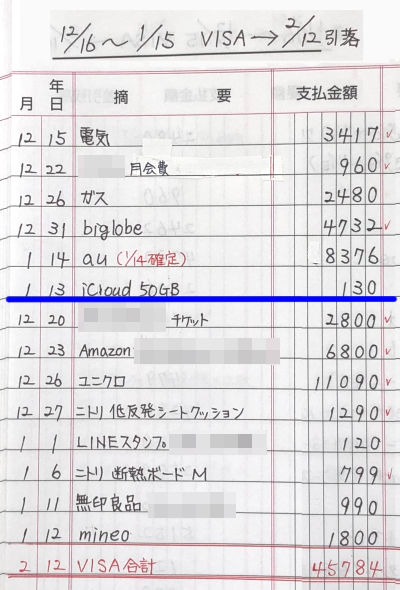 12/16〜1/15 VISA→2/12引落
年
月 日 摘 要 支払金額
12 15 電気 3417 ✓
12 22 月会費 960 ✓
12 26 ガス 2480
12 31 biglobe 4732 ✓
1 14 au (1/14確定) 8376
1 13 iCloud 50GB 130
12 20 チケット 2800 ✓
12 23 Amazon 6800 ✓
12 26 ユニクロ 11090 ✓
12 27 ニトリ 低反発シートクッション 1290 ✓
1 1 LINEスタンプ 120
1 6 ニトリ 断熱ボード M 799 ✓
1 11 無印良品 990
1 12 mineo 1800
2 12 VISA合計 45784